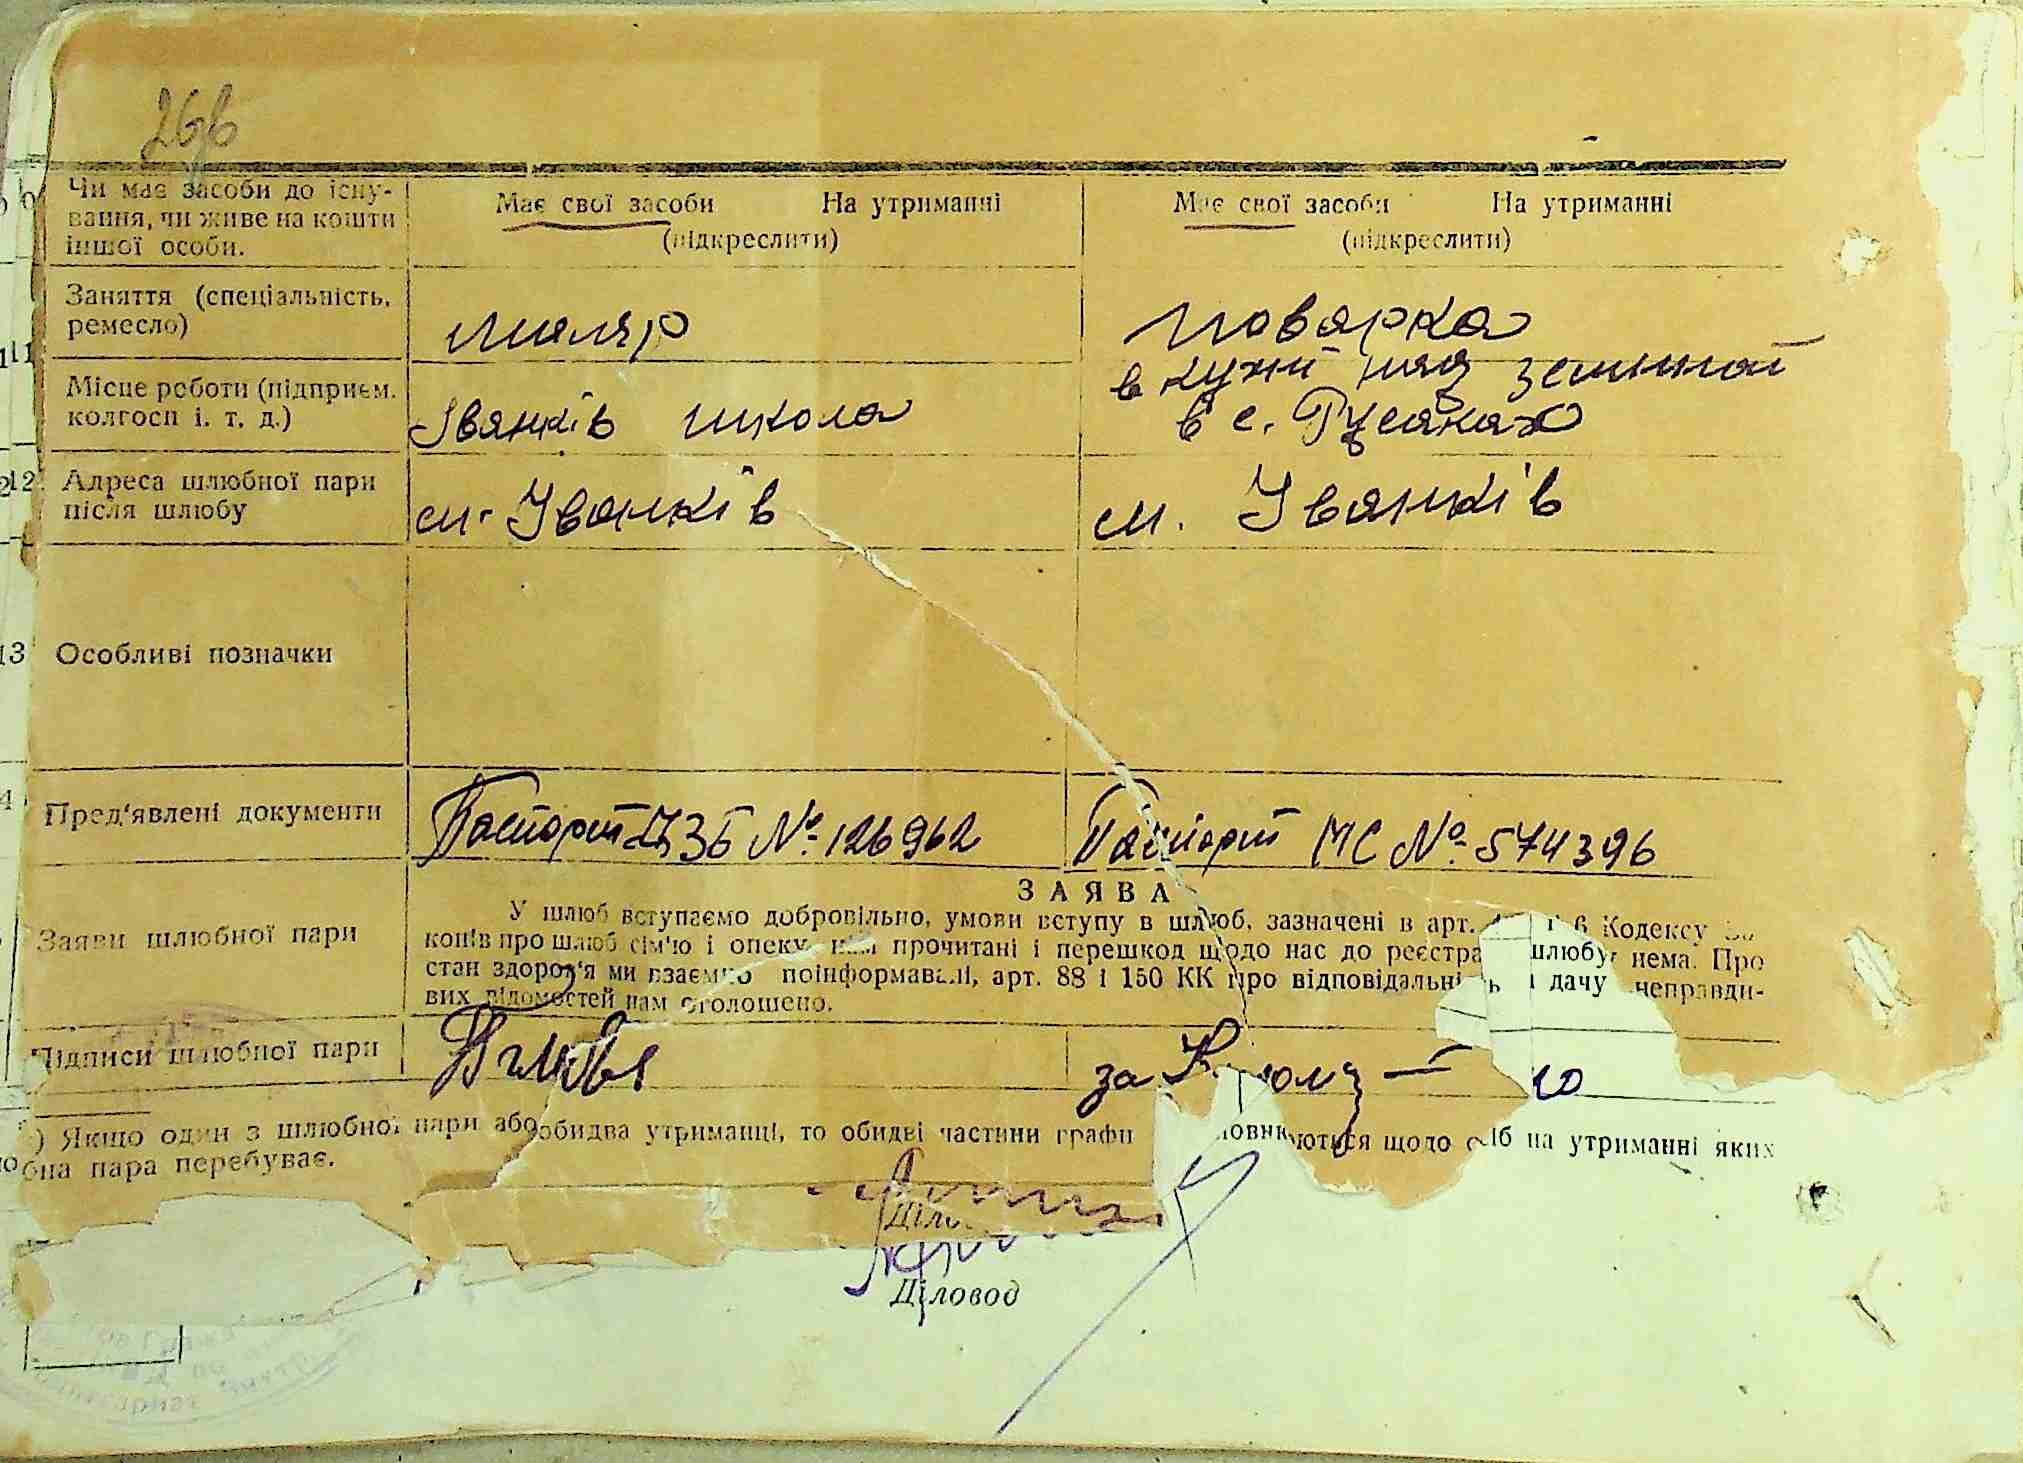 Чи має засоби до існу-
вання, чи живе на кошти
іншої особи.
Має свої засоби На утриманні
(підкреслити)
Має свої засоби На утриманні
(підкреслити)
11 Заняття (спеціальність,
ремесло)
маляр
поварка
Місце роботи (підприєм.
колгосп і. т. д.)
Іванків школа
в кухні над
в с. Русаках
12 Адреса шлюбної пари
після шлюбу
м. Іванків
м. Іванків
13 Особливі позначки
Пред'явлені документи
Паспорт № 126962
Паспорт МС № 574396
Заяви шлюбної пари
ЗАЯВА
У шлюб вступаємо добровільно, умови вступу в шлюб, зазначені в арт. Кодексу
конів про шлюб сім'ю і опеку нам прочитані і перешкод щодо нас до реєстра шлюбу нема. Про
стан здоров'я ми взаємно поінформавані, арт. 88 і 150 КК про відповідальні дачу неправди-
вих відомостей нам оголошено.
Підписи шлюбної пари
за
) Якщо один з шлюбної пари або обидва утриманці, то обидві частини графи щодо осіб на утриманні яких
бна пара перебуває.
Діло
Діловод